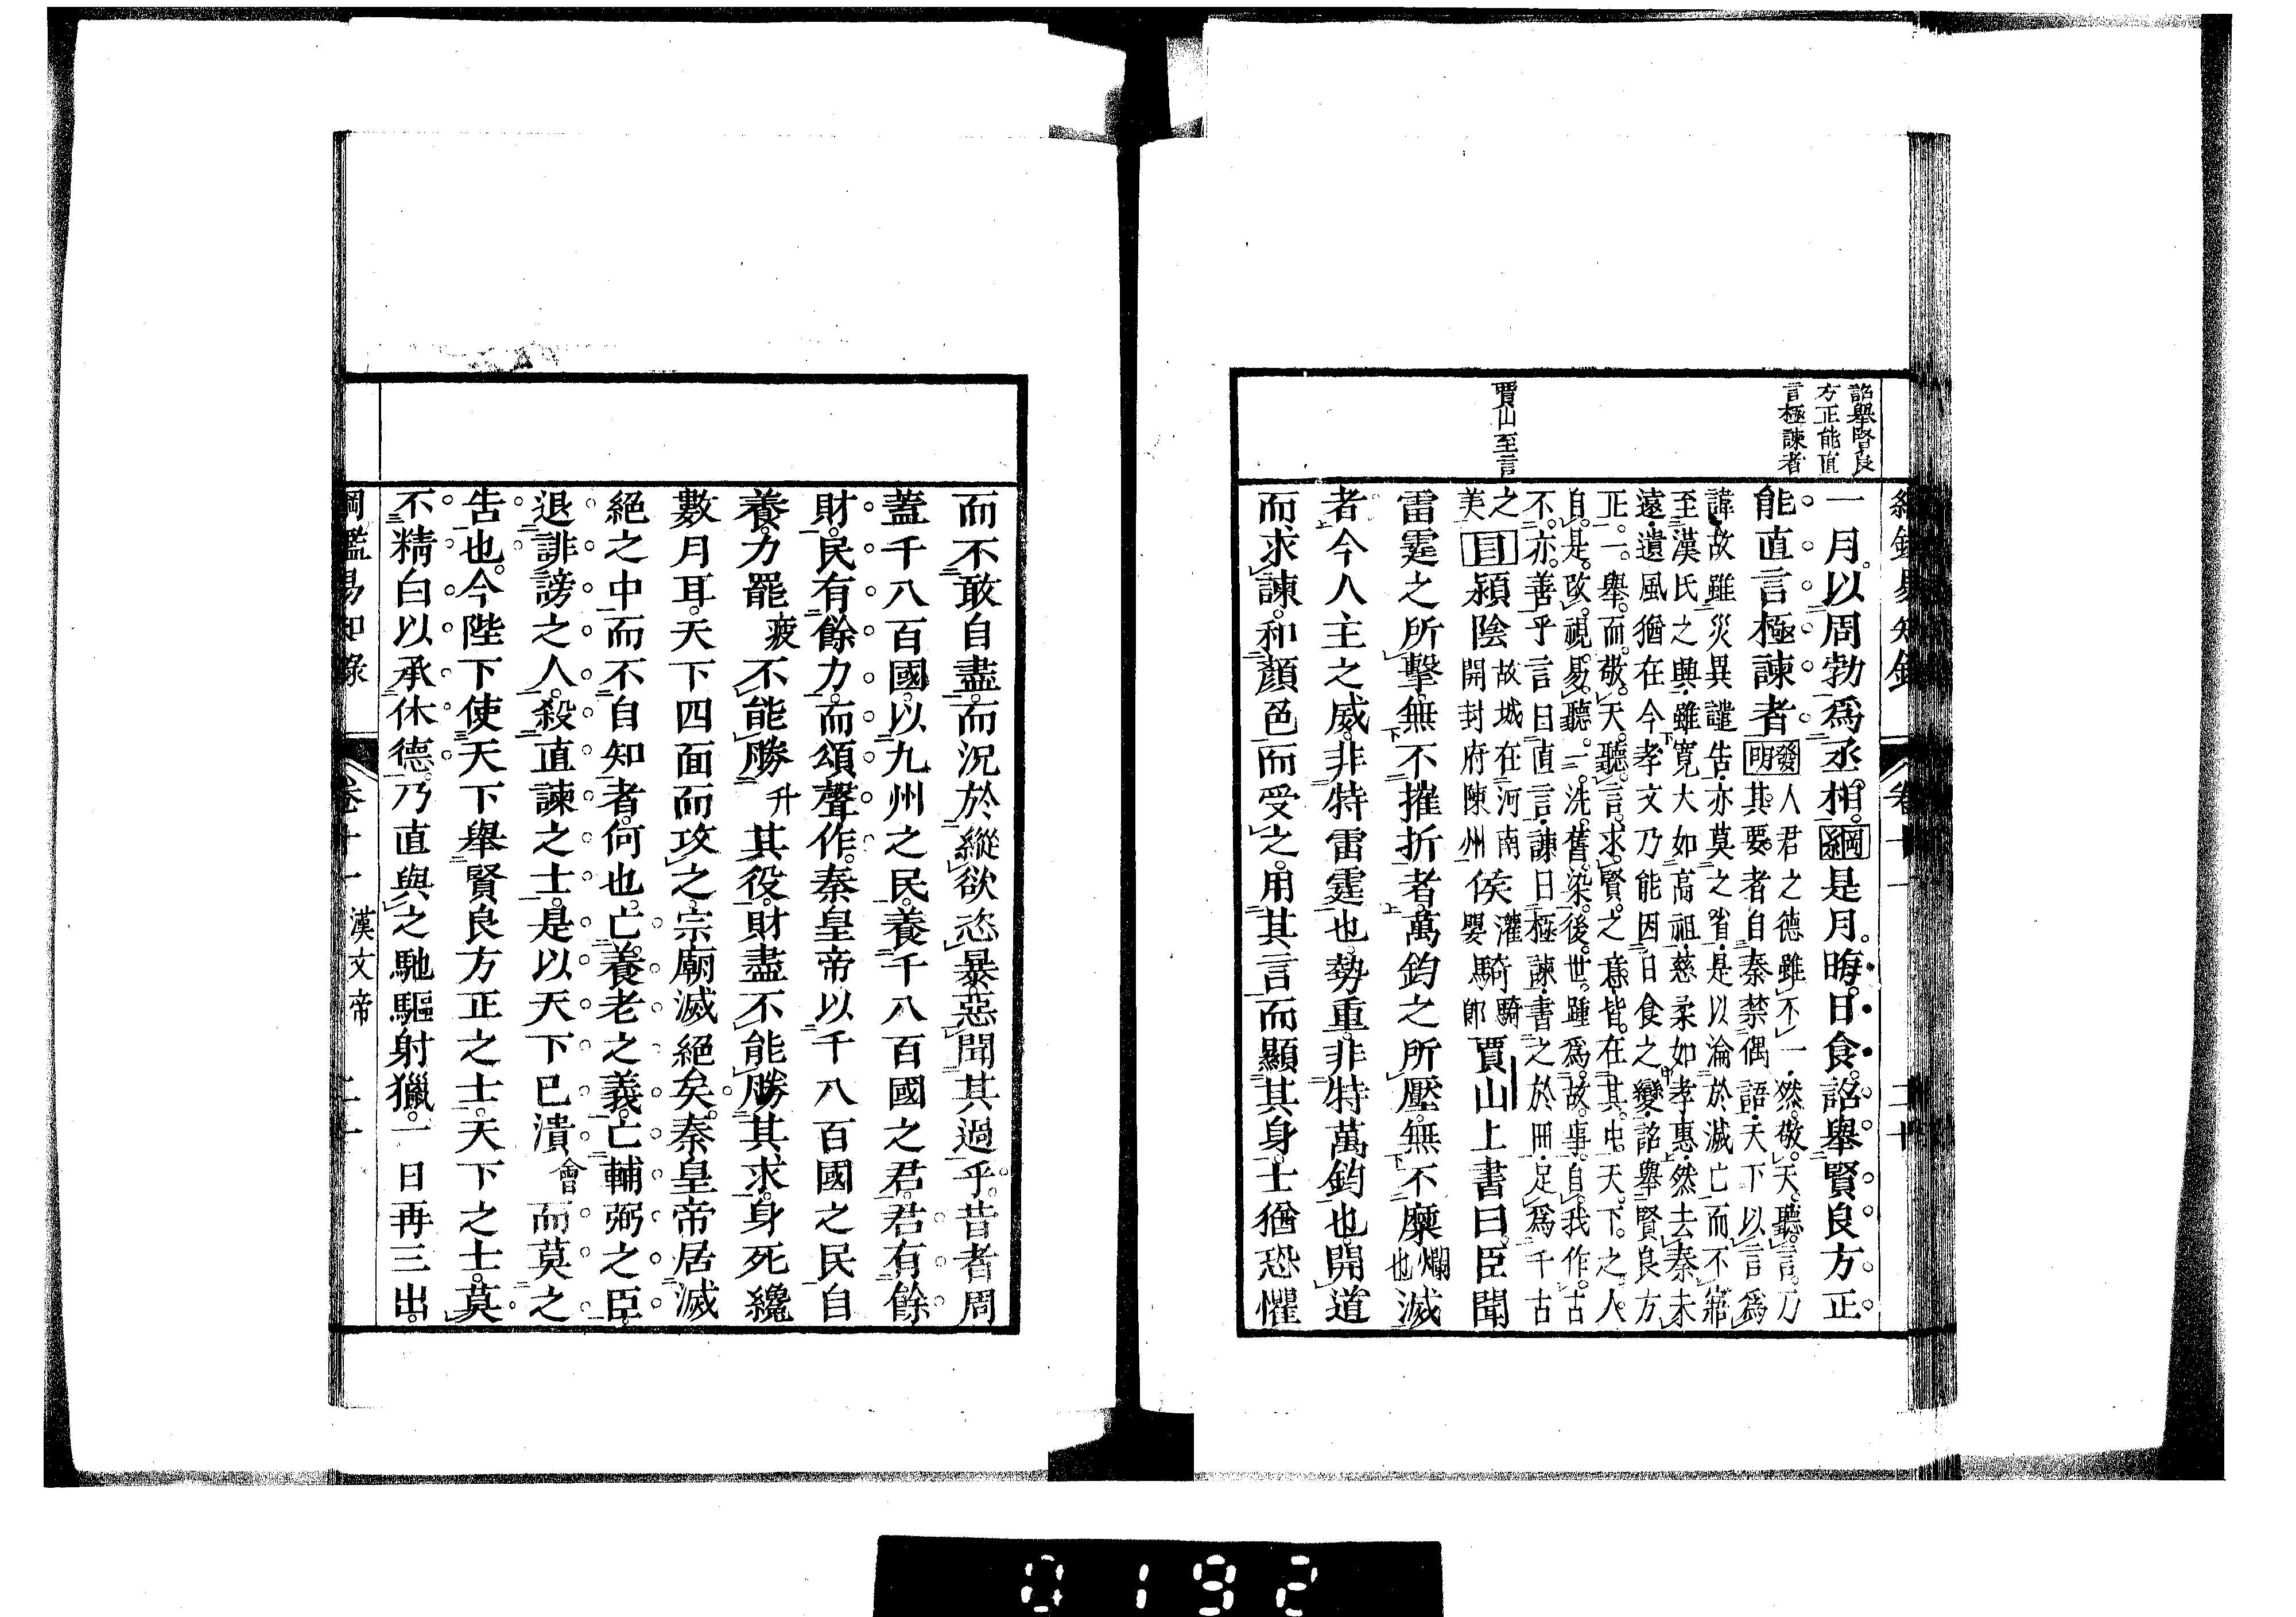 詔舉賢良
方正能直
言極諫者
賈山至言
一月以周勃爲丞相綱是月晦日食詔舉賢良方正
能直言極諫者發明人君之德雖不一然敬天聽言乃
其要者自秦禁偶語天下以言爲
諱故雖災異譴告亦莫之省是以淪於滅亡而不寤
至漢氏之興雖寬大如高祖慈柔如孝惠然去秦未
遠遺風猶在今孝文乃能因日食之變詔舉賢良方
正一舉而敬天聽言求賢之意皆在其中天下之人
自是改視易聽一洗舊染後世踵爲故事自我作古
不亦善乎言曰直言諫曰極諫書之於冊足爲千古
之美目潁陰故城在河南開封府陳州侯灌嬰騎騎郎賈山上書曰臣聞
雷霆之所擊無不摧折者萬鈞之所壓無不糜爛也滅
者今人主之威非特雷霆也勢重非特萬鈞也開道
而求諫和顏色而受之用其言而顯其身士猶恐懼
而不敢自盡而況於縱欲恣暴惡聞其過乎昔者周
蓋千八百國以九州之民養千八百國之君君有餘
財民有餘力而頌聲作秦皇帝以千八百國之民自
養力罷疲不能勝升其役財盡不能勝其求身死纔
數月耳天下四面而攻之宗廟滅絕矣秦皇帝居滅
絕之中而不自知者何也亡養老之義亡輔弼之臣
退誹謗之人殺直諫之士是以天下已潰會而莫之
告也今陛下使天下舉賢良方正之士天下之士莫
不精白以承休德乃直與之馳驅射獵一日再三出
綱鑑易知錄 卷十一 漢文帝 二十